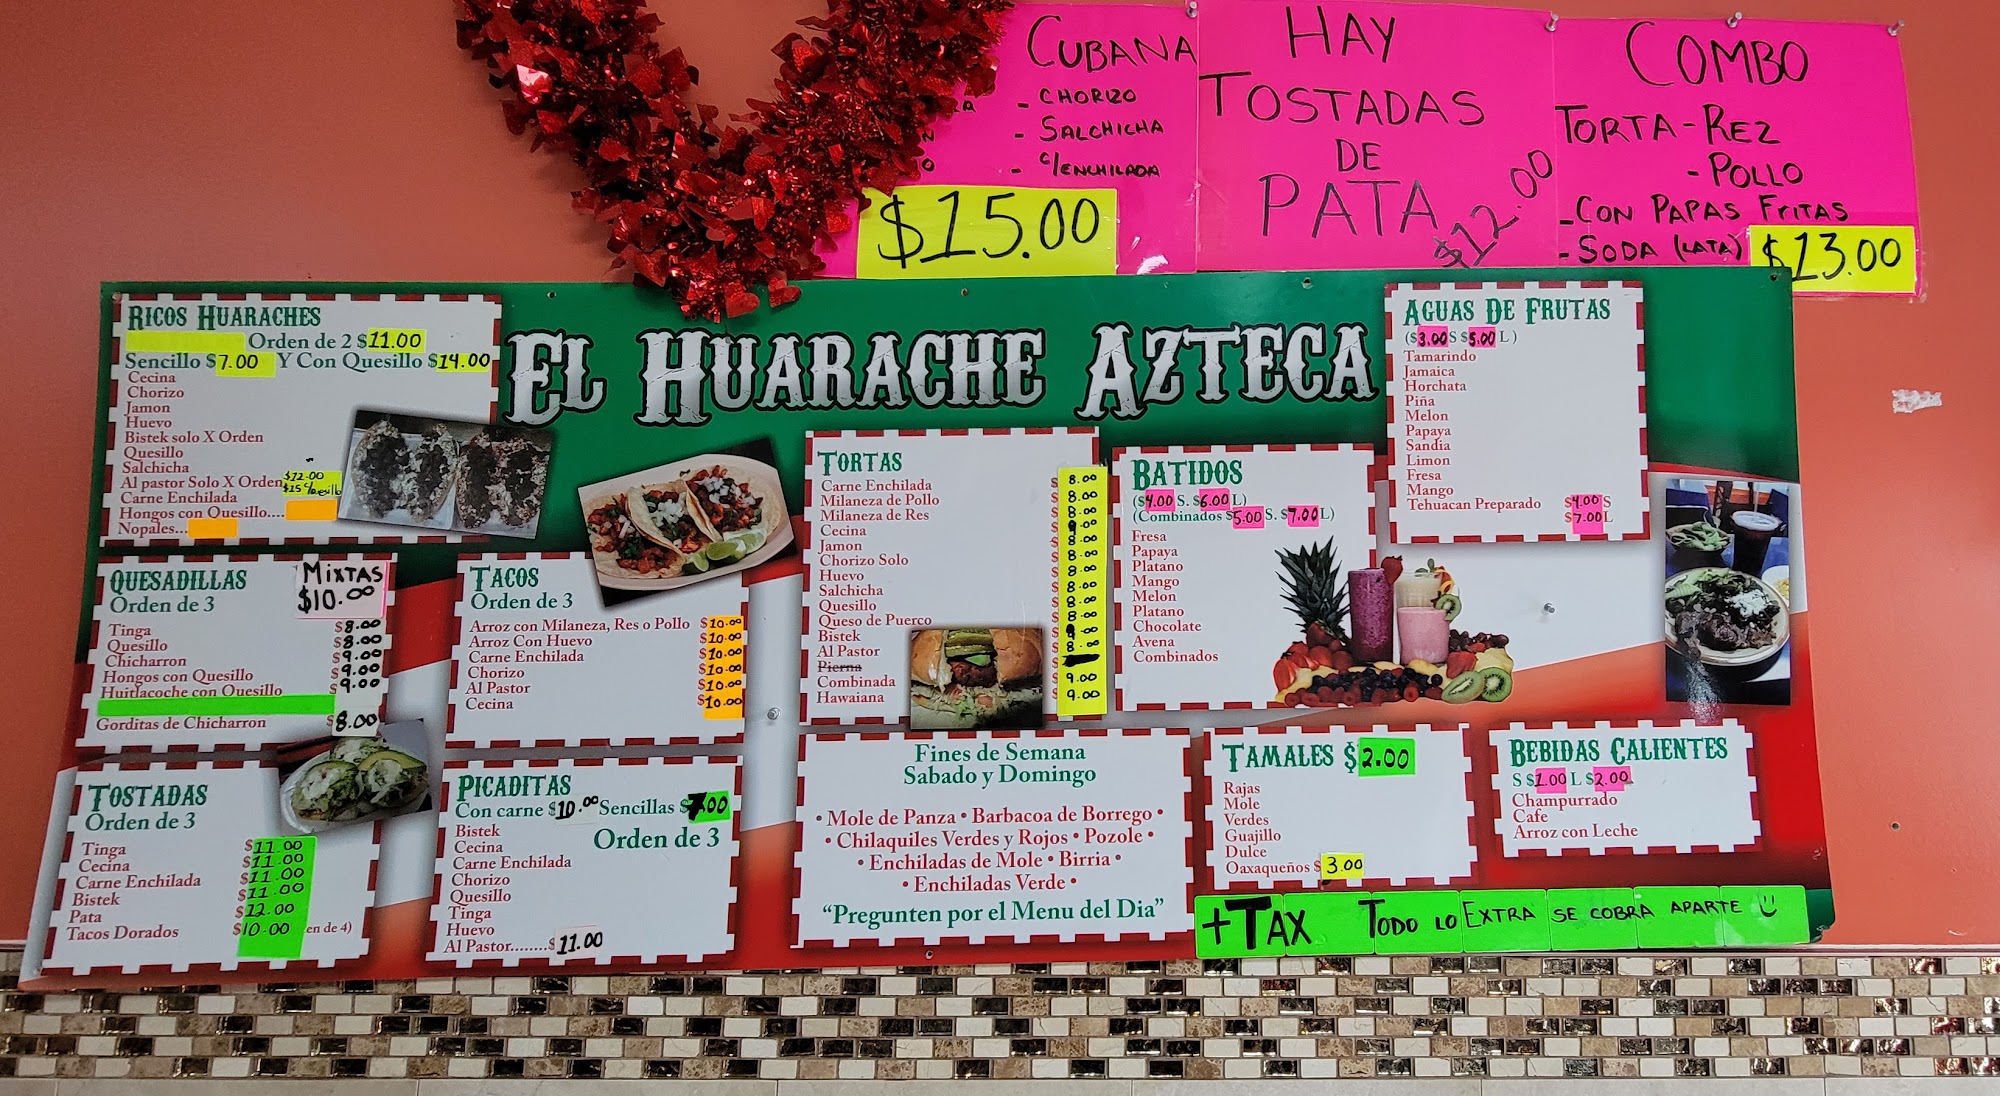 CUBANA
- CHORIZO
- SALCHICHA
- C/ENCHILADA
$15.00
HAY
TOSTADAS
DE
PATA
$12.00
COMBO
TORTA - REZ
- POLLO
- CON PAPAS FRITAS
- SODA (LATA) $13.00
EL HUARACHE AZTECA
RICOS HUARACHES
Orden de 2 $11.00
Sencillo $7.00 Y Con Quesillo $14.00
Cecina
Chorizo
Jamon
Huevo
Bistek solo X Orden
Quesillo
Salchicha
Al pastor Solo X Orden $12.00
$15 C/Quesillo
Carne Enchilada
Hongos con Quesillo....
Nopales...
QUESADILLAS
Orden de 3
MIXTAS
$10.00
Tinga $8.00
Quesillo $8.00
Chicharron $9.00
Hongos con Quesillo $9.00
Huitlacoche con Quesillo $9.00
Gorditas de Chicharron $8.00
TOSTADAS
Orden de 3
Tinga $11.00
Cecina $11.00
Carne Enchilada $11.00
Bistek $11.00
Pata $12.00
Tacos Dorados $10.00 en de 4)
TACOS
Orden de 3
Arroz con Milaneza, Res o Pollo $10.00
Arroz Con Huevo $10.00
Carne Enchilada $10.00
Chorizo $10.00
Al Pastor $10.00
Cecina $10.00
PICADITAS
Con carne $10.00 Sencillas $7.00
Orden de 3
Bistek
Cecina
Carne Enchilada
Chorizo
Quesillo
Tinga
Huevo
Al Pastor........$11.00
TORTAS
Carne Enchilada $8.00
Milaneza de Pollo $8.00
Milaneza de Res $8.00
Cecina $9.00
Jamon $8.00
Chorizo Solo $8.00
Huevo $8.00
Salchicha $8.00
Quesillo $8.00
Queso de Puerco $8.00
Bistek $9.00
Al Pastor $8.00
Pierna
Combinada $9.00
Hawaiana $9.00
Fines de Semana
Sabado y Domingo
• Mole de Panza • Barbacoa de Borrego •
• Chilaquiles Verdes y Rojos • Pozole •
• Enchiladas de Mole • Birria •
• Enchiladas Verde •
"Pregunten por el Menu del Dia"
BATIDOS
($4.00 S. $6.00 L)
(Combinados $5.00 S. $7.00 L)
Fresa
Papaya
Platano
Mango
Melon
Platano
Chocolate
Avena
Combinados
AGUAS DE FRUTAS
($3.00 S $5.00 L)
Tamarindo
Jamaica
Horchata
Piña
Melon
Papaya
Sandia
Limon
Fresa
Mango
Tehuacan Preparado $4.00 S
$7.00 L
TAMALES $2.00
Rajas
Mole
Verdes
Guajillo
Dulce
Oaxaqueños $3.00
BEBIDAS CALIENTES
S $1.00 L $2.00
Champurrado
Cafe
Arroz con Leche
+TAX TODO LO EXTRA SE COBRA APARTE